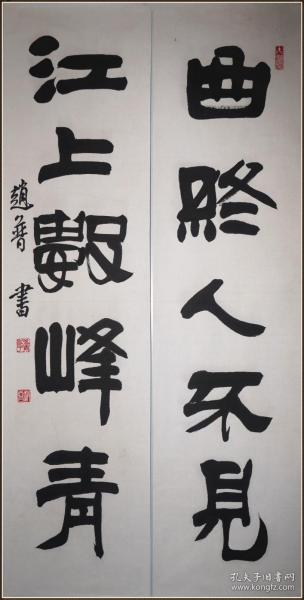 曲終人不見
江上數峰青
趙普書
孔夫子旧书网
www.kongfz.com